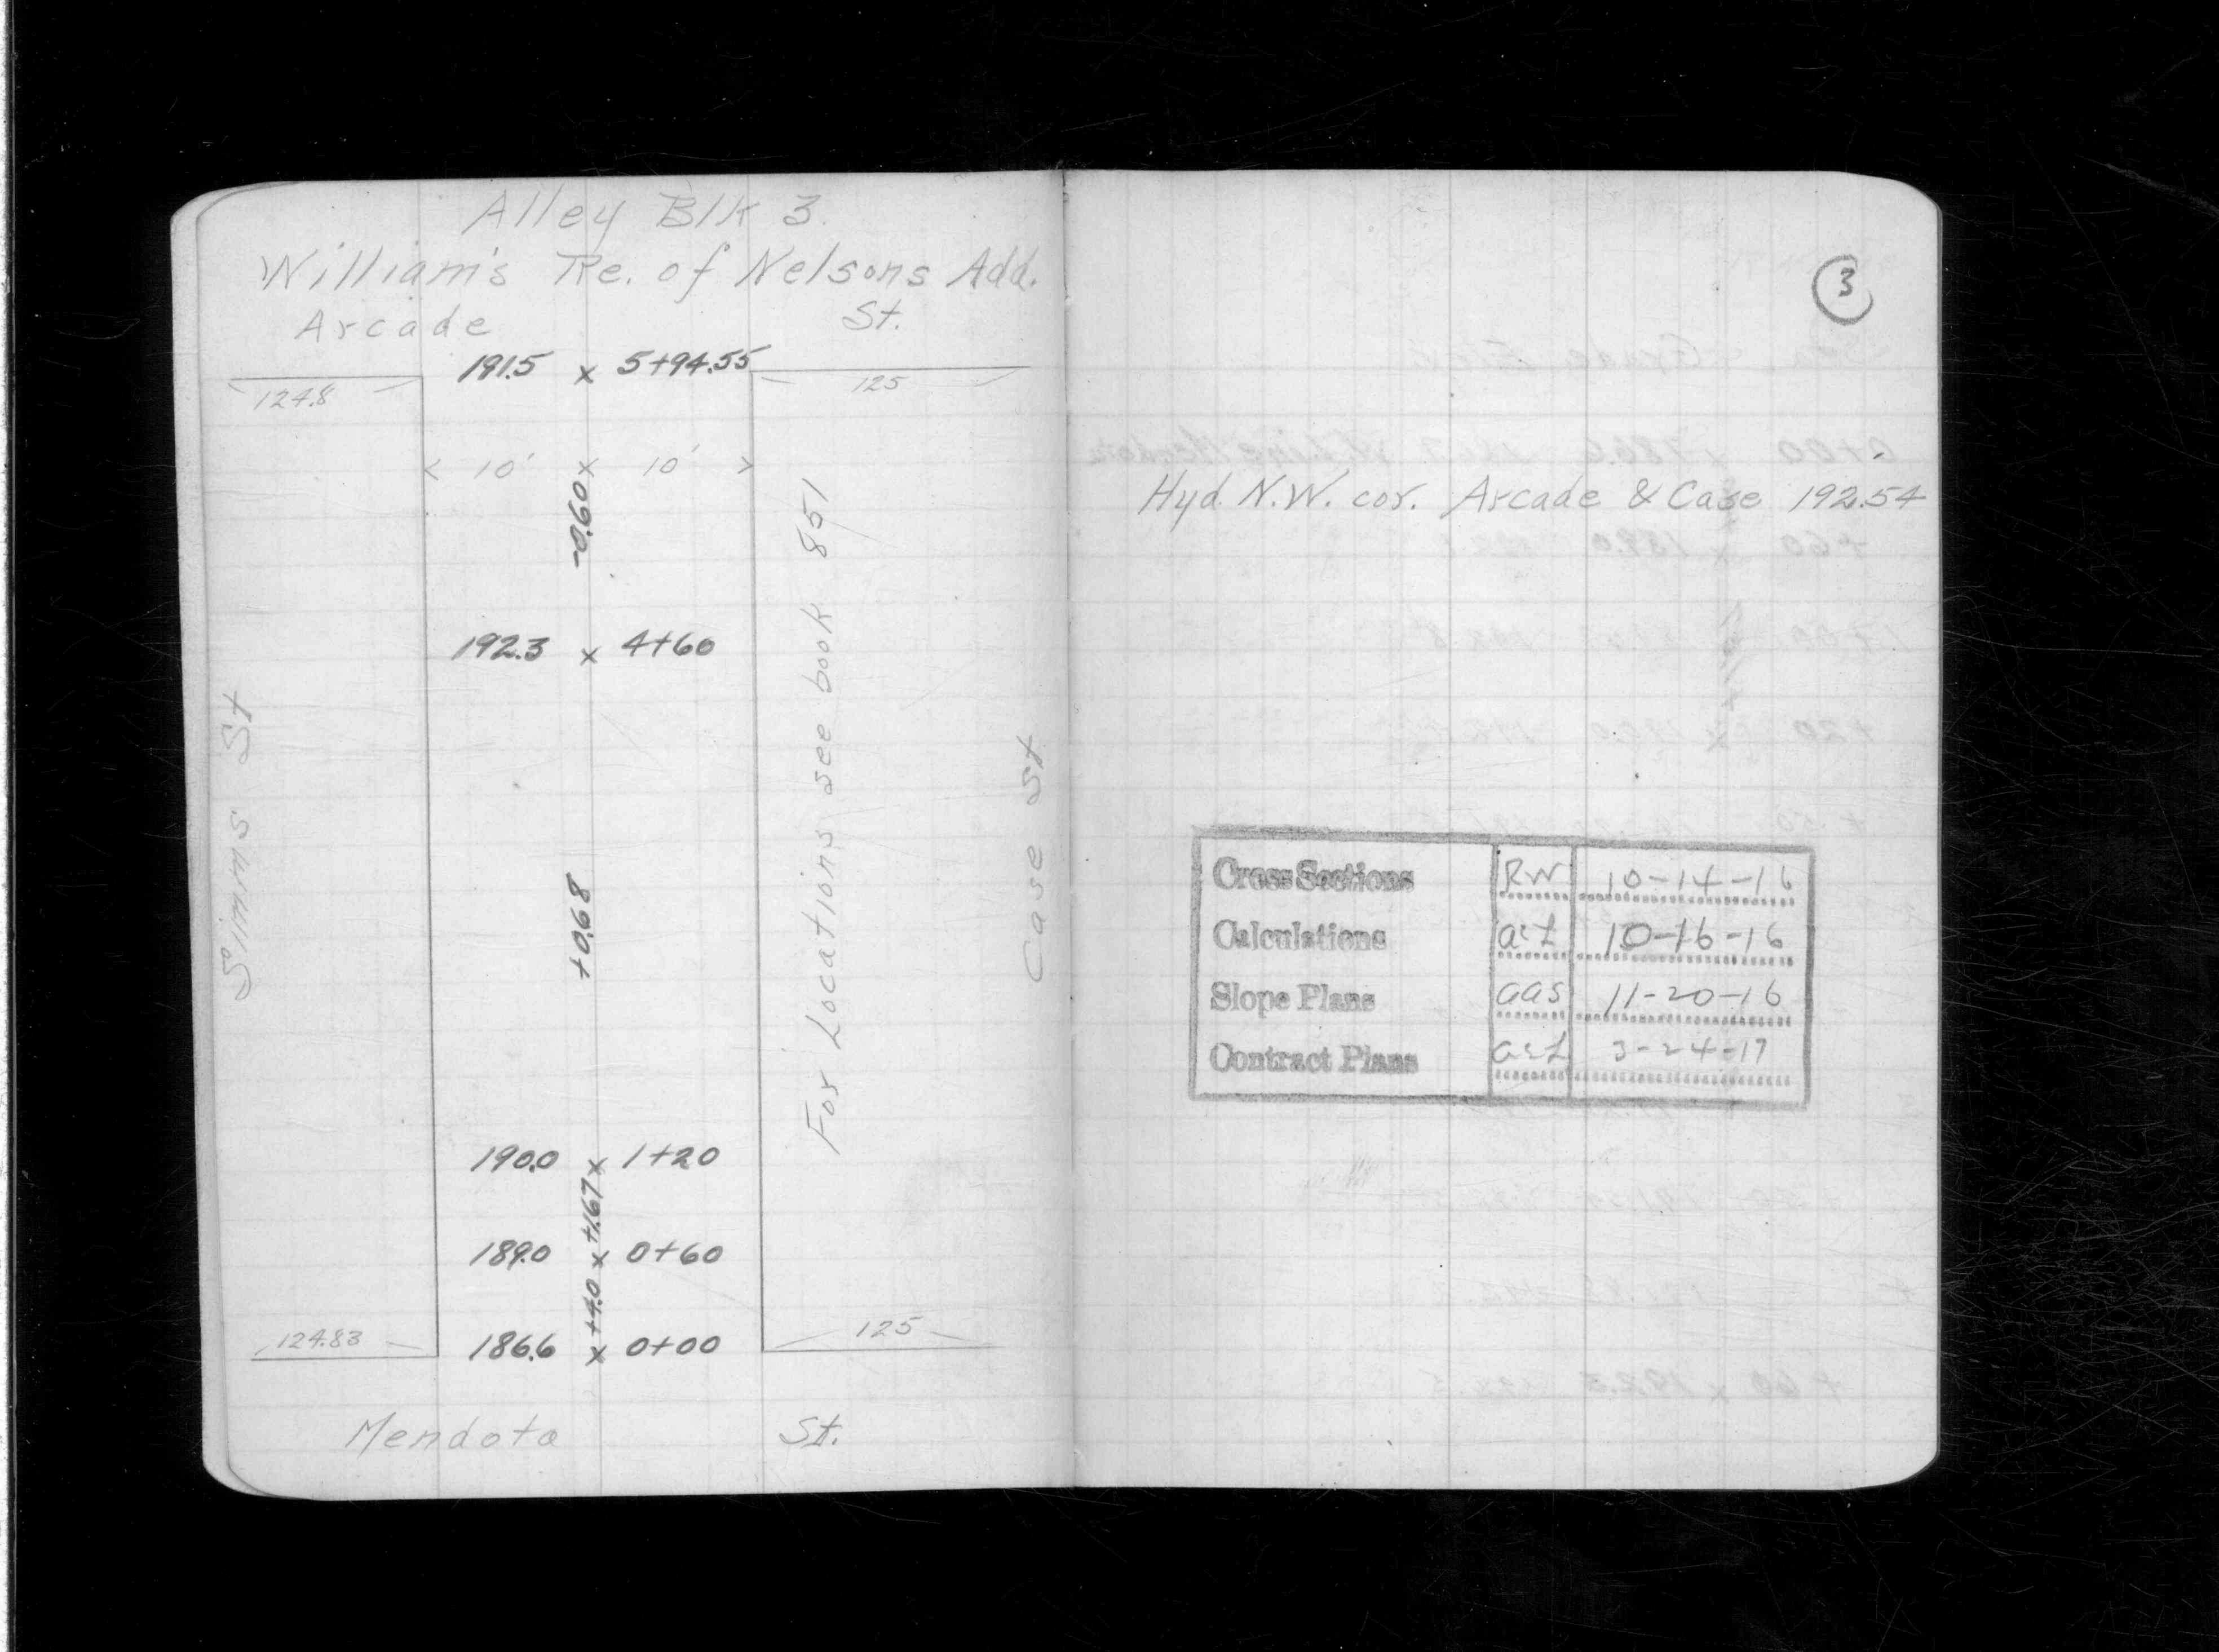 Alley Blk 3.
William's Re. of Nelsons Add.
Arcade St.
191.5 x 5+94.55
124.8 125
< 10' x 10' >
-0.60
192.3 x 4+60
Simms St
+0.68
For Locations see book 851
Case St
190.0 x 1+20
+1.67
189.0 x 0+60
+4.0
186.6 x 0+00
124.83 125
Mendota St.
3
Hyd. N.W. cor. Arcade & Case 192.54
Cross Sections RW 10-14-16
Calculations acL 10-16-16
Slope Plans aas 11-20-16
Contract Plans acL 3-24-17